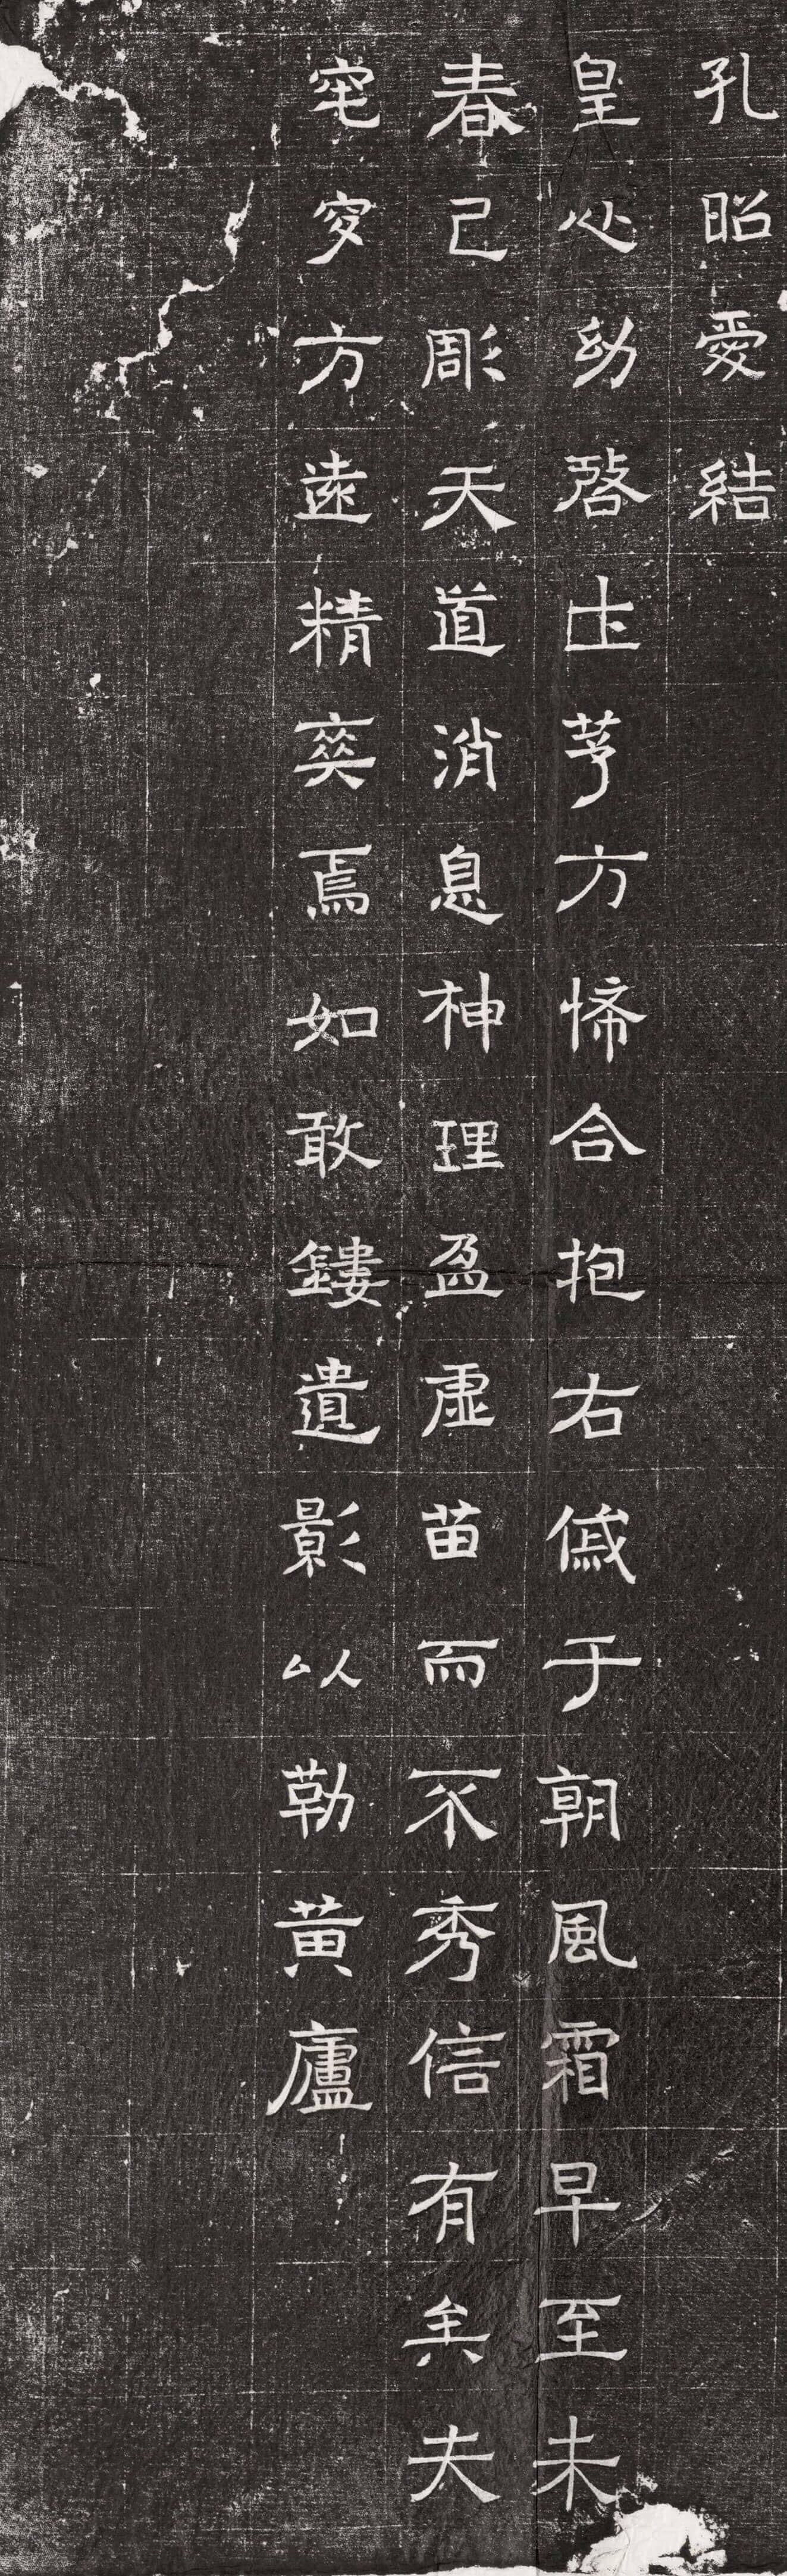 孔昭愛結
皇心幼啓土茅方悕合抱右于朝風霜早至未
春己彫天道消息神理盈虛苗而不秀信有矣夫
窀穸方遠精爽焉如敢鏤遺影以勒黄廬